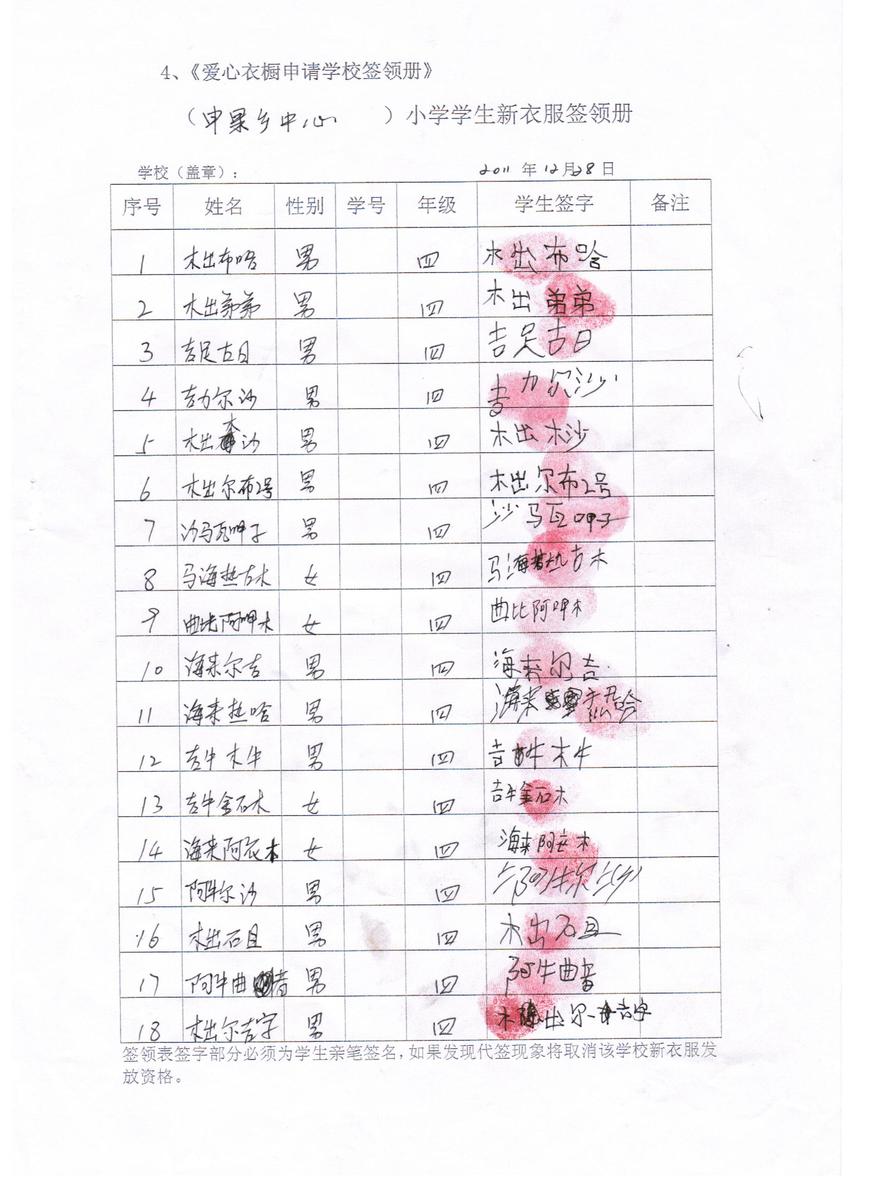 4、《爱心衣橱申请学校签领册》
（申果乡中心　　）小学学生新衣服签领册
学校（盖章）：　2011 年 12 月 28 日
序号 姓名 性别 学号 年级 学生签字 备注
1 木出布哈 男 四 木出布哈
2 木出弟弟 男 四 木出弟弟
3 吉足古日 男 四 吉足古日
4 吉力尔沙 男 四 吉力尔沙
5 木出木沙 男 四 木出木沙
6 木出尔布2号 男 四 木出尔布2号
7 沙马瓦呷子 男 四 沙马瓦呷子
8 马海热古木 女 四 马海热古木
9 曲比阿呷木 女 四 曲比阿呷木
10 海来尔吉 男 四 海来尔吉
11 海来热哈 男 四 海来热哈
12 吉牛木牛 男 四 吉牛木牛
13 吉牛金石木 女 四 吉牛金石木
14 海来阿衣木 女 四 海来阿 木
15 阿牛尔沙 男 四
16 木出石且 男 四 木出石且
17 阿牛曲 男 四 阿牛曲
18 木出尔吉字 男 四 木出尔吉字
签领表签字部分必须为学生亲笔签名，如果发现代签现象将取消该学校新衣服发
放资格。